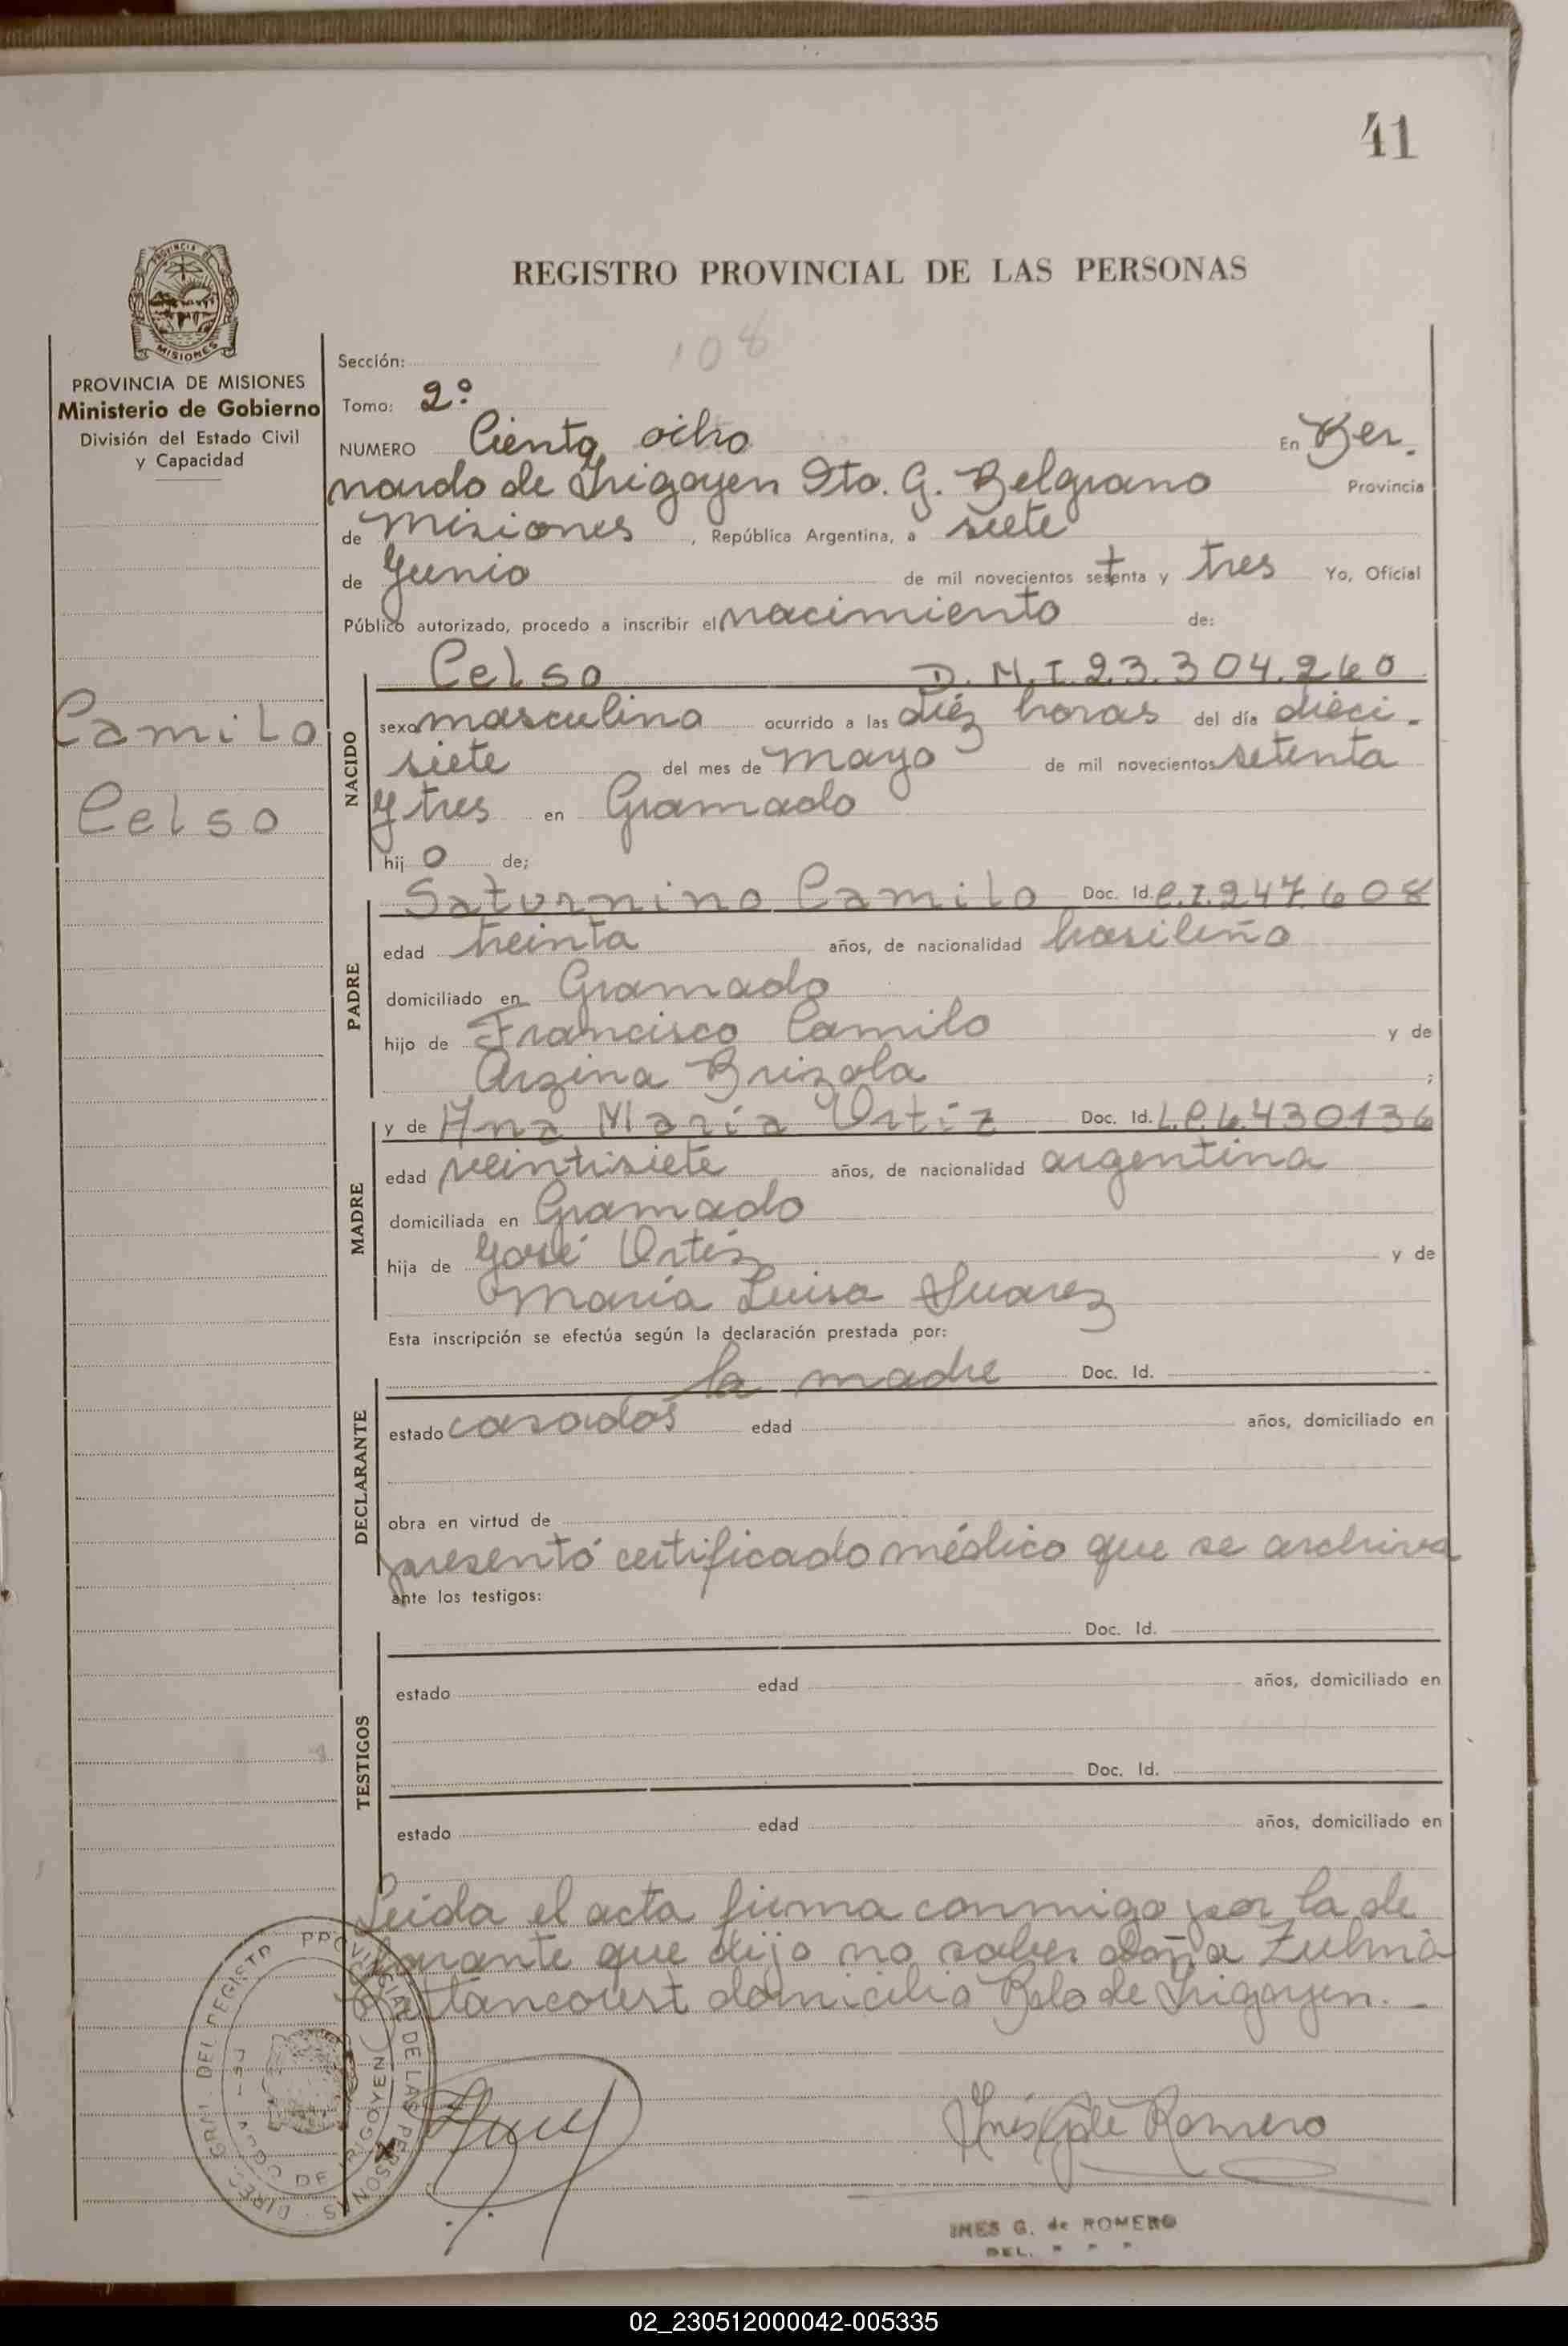 41
REGISTRO PROVINCIAL DE LAS PERSONAS
PROVINCIA DE MISIONES
MISIONES
PROVINCIA DE MISIONES
Ministerio de Gobierno
División del Estado Civil
y Capacidad
Camilo
Celso
108
Sección:
Tomo: 2º
NUMERO Ciento ocho En Ber.
nardo de Irigoyen Dto. G. Belgrano Provincia
de Misiones, República Argentina, a siete
de Junio de mil novecientos setenta y tres Yo, Oficial
Público autorizado, procedo a inscribir el nacimiento de:
NACIDO
Celso D.N.I. 23.304.260
sexo masculino ocurrido a las diéz horas del día dieci-
siete del mes de mayo de mil novecientos setenta
y tres en Gramado
hij o de;
PADRE
Saturnino Camilo Doc. Id. C.I. 247.608
edad treinta años, de nacionalidad brasileño
domiciliado en Gramado
hijo de Francisco Camilo y de
Arzina Brizola ;
MADRE
y de Ana María Ortiz Doc. Id. L.C. 6.430136
edad veintisiete años, de nacionalidad argentina
domiciliada en Gramado
hija de José Ortiz y de
María Luisa Suarez
Esta inscripción se efectúa según la declaración prestada por:
DECLARANTE
la madre Doc. Id.
estado casados edad años, domiciliado en
obra en virtud de
presentó certificado médico que se archiva
ante los testigos:
TESTIGOS
Doc. Id.
estado edad años, domiciliado en
Doc. Id.
estado edad años, domiciliado en
Leida el acta firma conmigo por la de
clarante que dijo no saber doña Zulma
Bettancourt domicilio Bdo de Irigoyen.-
DIREC. GRAL. DEL REGISTRO PROVINCIAL DE LAS PERSONAS
DE IRIGOYEN
Inés G de Romero
INES G. de ROMERO
DEL. " " "
02_230512000042-005335